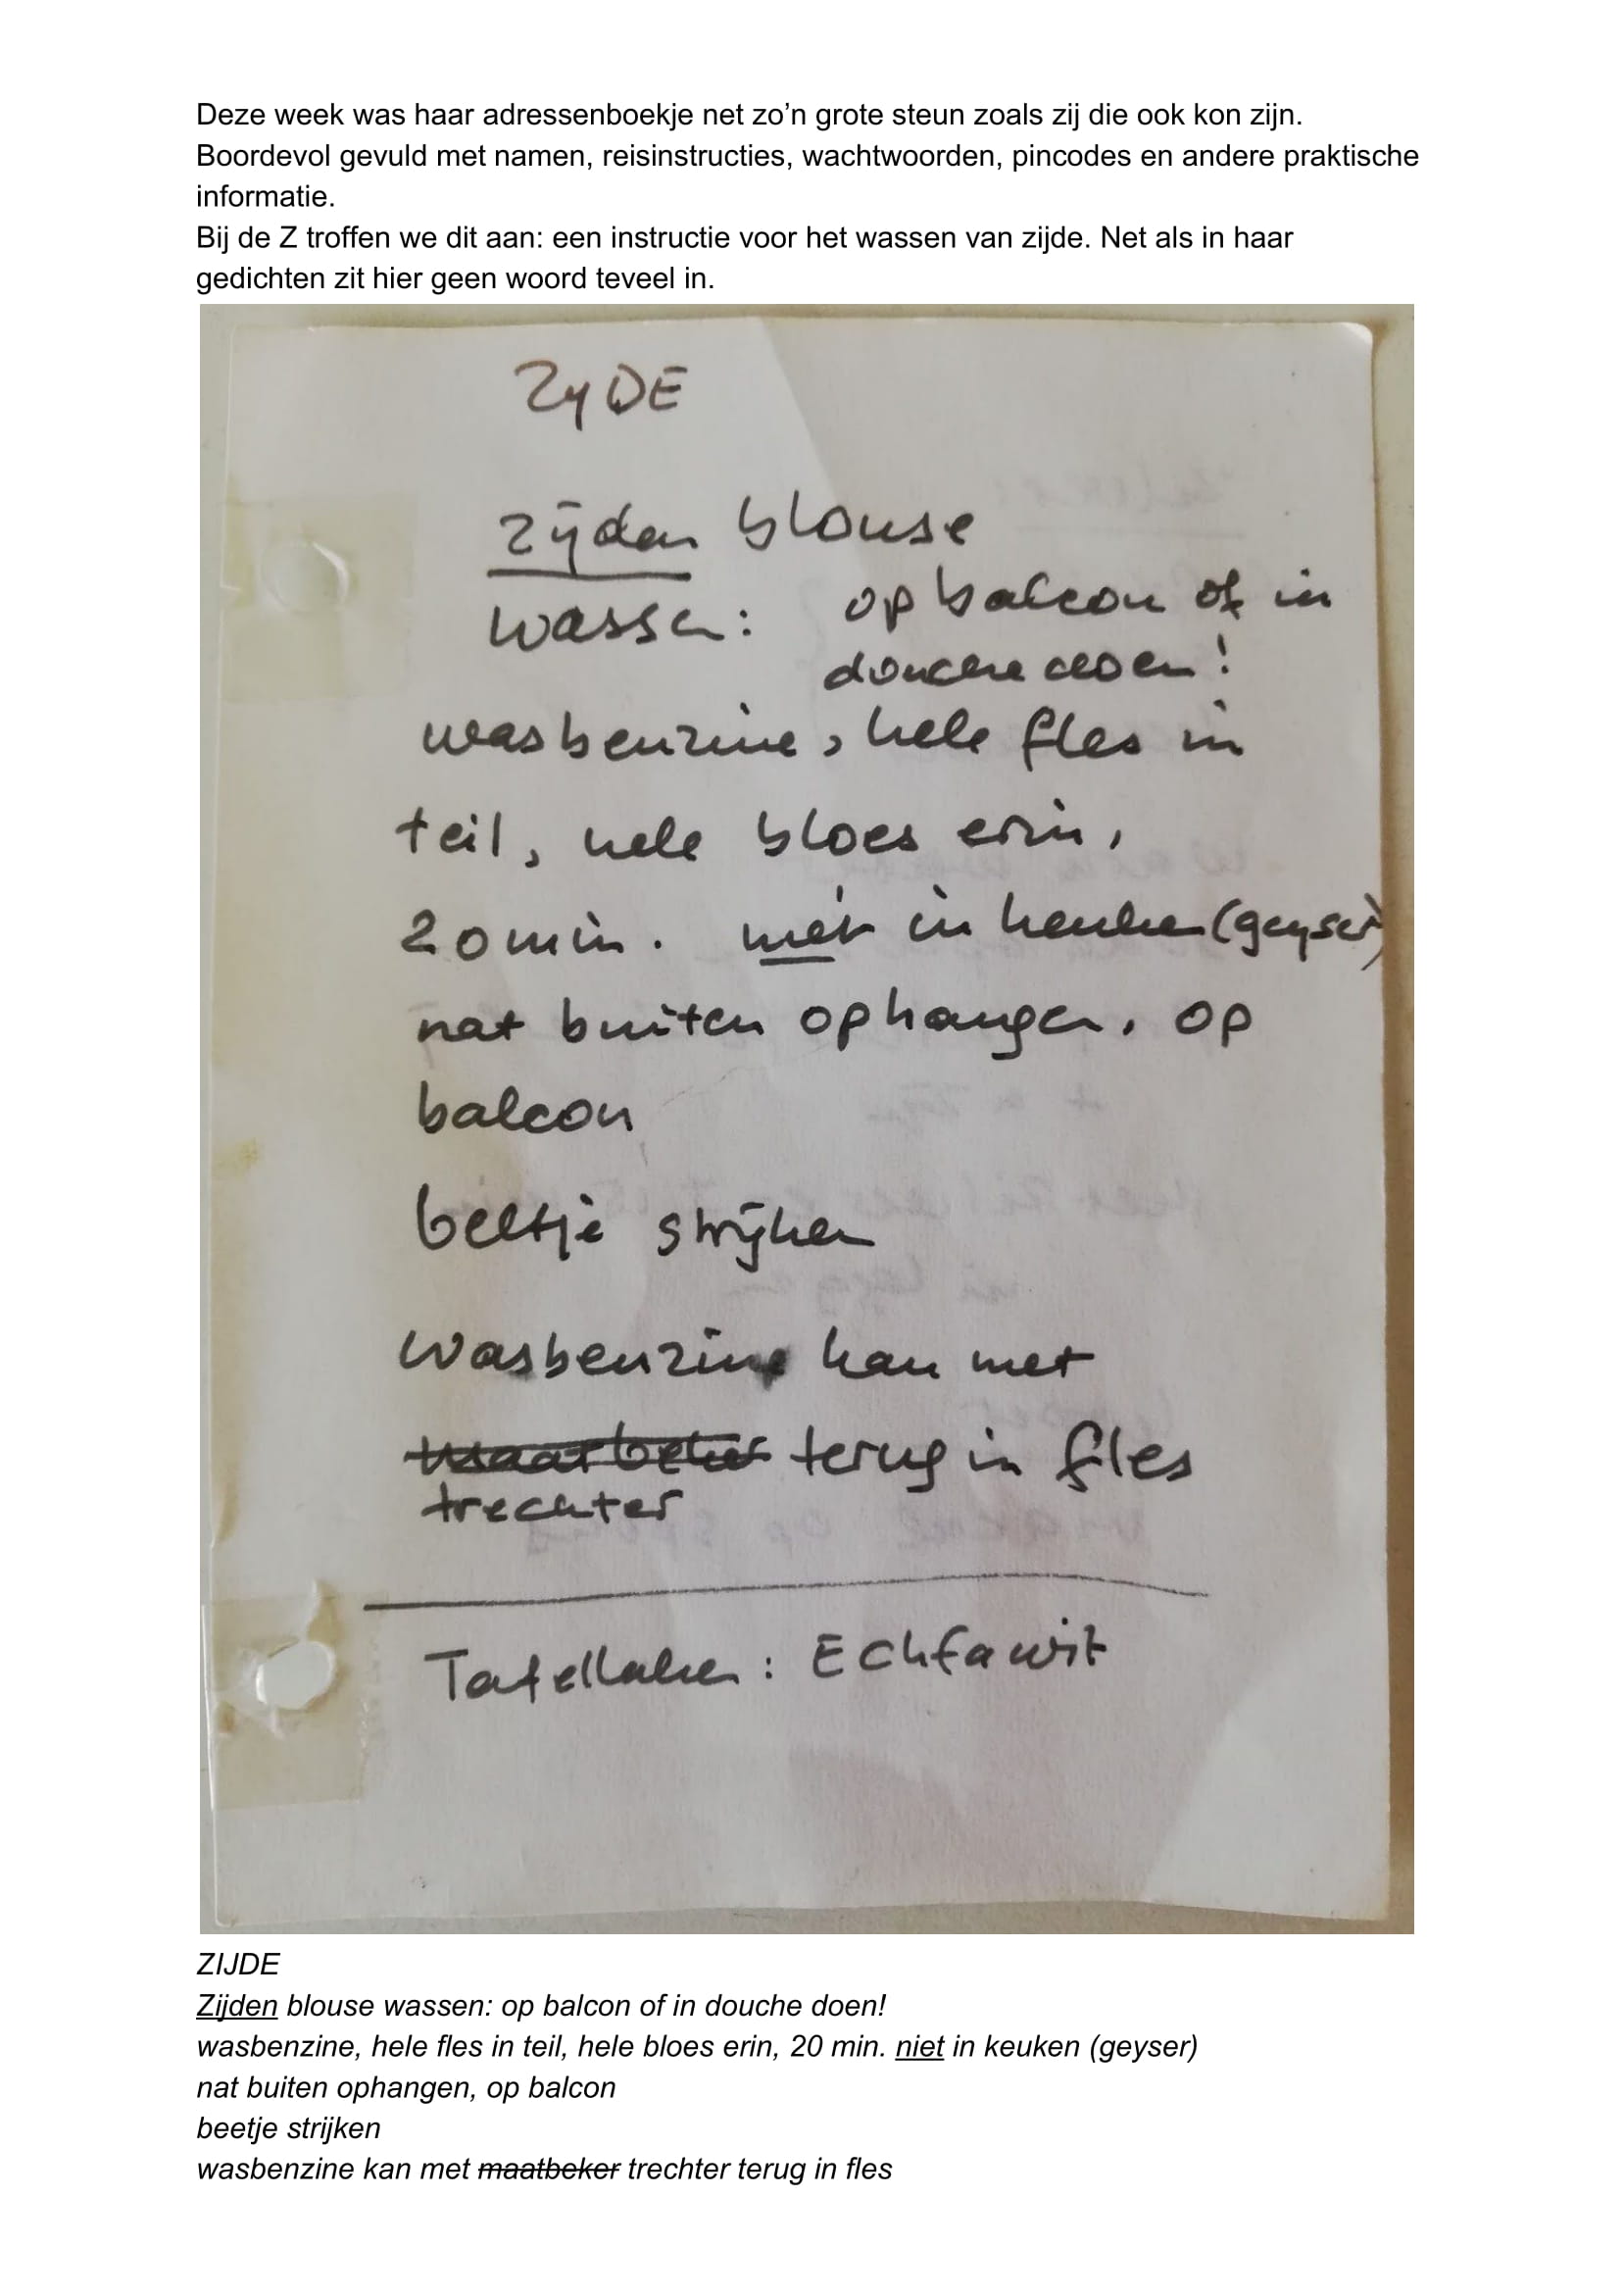 Deze week was haar adressenboekje net zo’n grote steun zoals zij die ook kon zijn.
Boordevol gevuld met namen, reisinstructies, wachtwoorden, pincodes en andere praktische
informatie.
Bij de Z troffen we dit aan: een instructie voor het wassen van zijde. Net als in haar
gedichten zit hier geen woord teveel in.
ZyDE
zijden blouse
wassen: op balcon of in
douche doen!
wasbenzine, hele fles in
teil, hele bloes erin,
20 min. niet in keuken (geyser)
nat buiten ophangen, op
balcon
beetje strijken
wasbenzine kan met
maatbeker terug in fles
trechter
Tafellaken: Echfawit
ZIJDE
Zijden blouse wassen: op balcon of in douche doen!
wasbenzine, hele fles in teil, hele bloes erin, 20 min. niet in keuken (geyser)
nat buiten ophangen, op balcon
beetje strijken
wasbenzine kan met maatbeker trechter terug in fles